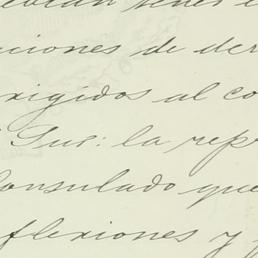 ciones de der
xigidos al co
Sur: la repr
onsulado que
flexiones y